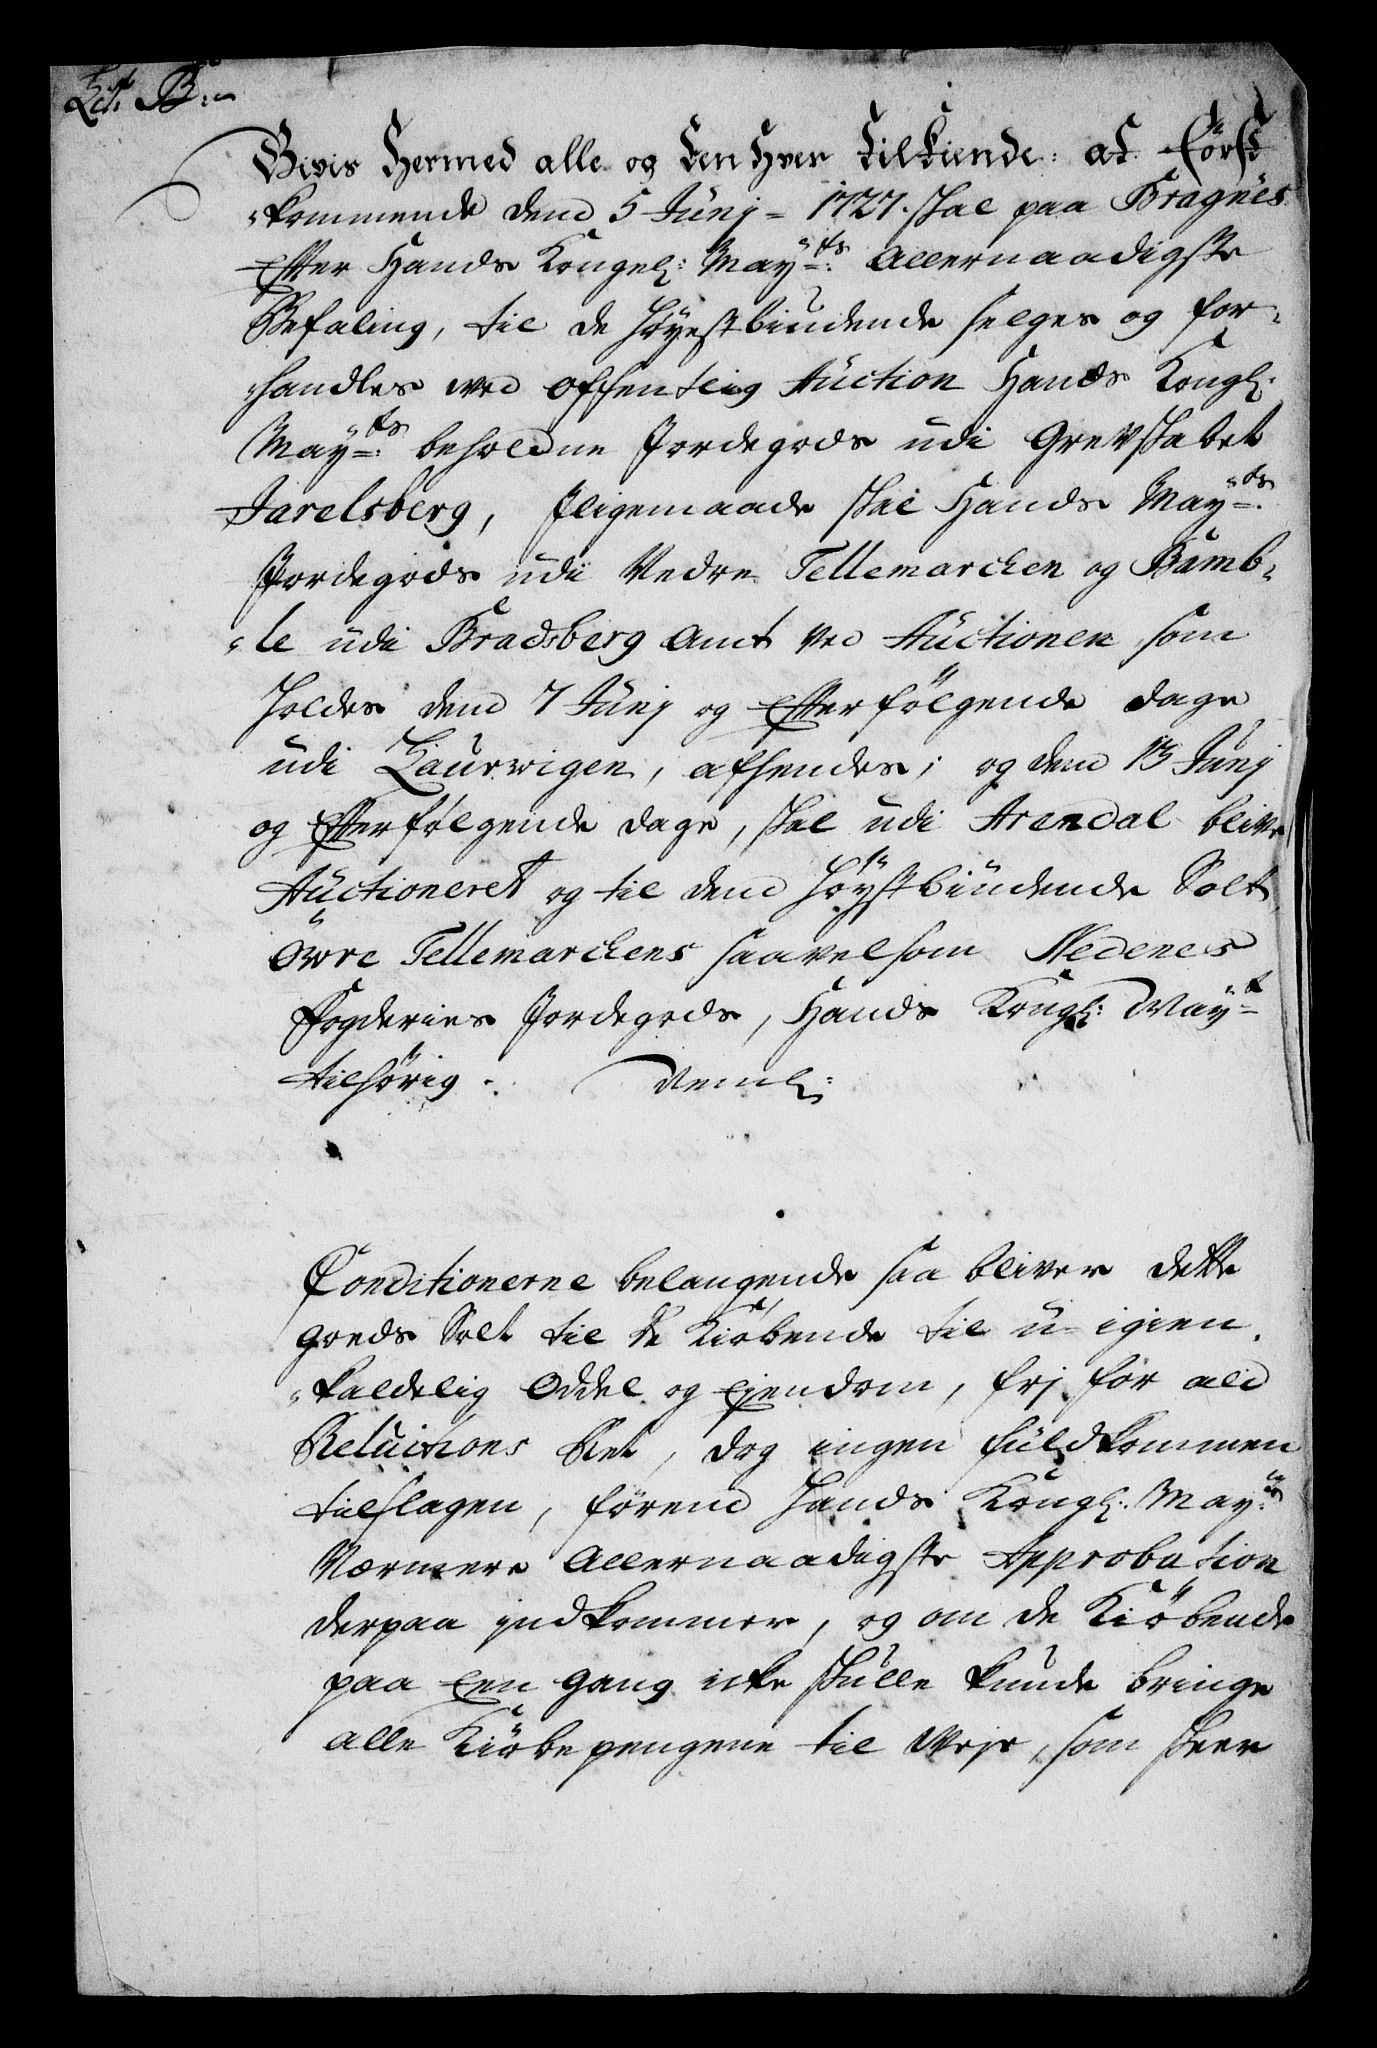 Lit: B:
Givis Hermed alle og Een Hver Tilkiende: at först
kommende dend 5 Junj 1727. skal paa Bragnes
Efter Hands Kongel: May:ts Allernaadigste
Befaling, til de Høyestbiudende selges og for-
handles ved offentlig Auction Hands Kongl:
May:ts beholdne Jordegods udi Grevskabet
Jarelsberg, Jligemaade skal Hands May:ts
Jordegods udi Nedre Tellemarcken og Bamb-
le udi Bradsberg Amt ved Auctionen som
Holdes dend 7 Junj og Efterfölgende dage
udi Laurwigen, afhendes; og dend 13 Junj
og Efterfølgende dage, skal udi Arendal blive
Auctioneret og til dend Høystbiudende Solt
Öwre Tellemarckens saavelsom Nedenes
Fogderies Jordegods, Hands Kongl: May:t
tilhørig. Neml:
Conditionerne belangende saa bliver dette
Gods Solt til de Kiøbende til u-igien-
kaldelig Oddel og Ejendom, frj for ald
Reluitions Ret, dog ingen fuldkommen
tilslagen, førend Hands Kongl: May:ts
Nærmere Allernaadigste Approbation
derpaa indkommer, og om de Kiöbende
paa Een gang icke skulle kunde bringe
alle Kiöbepengene til Veje, som skeer